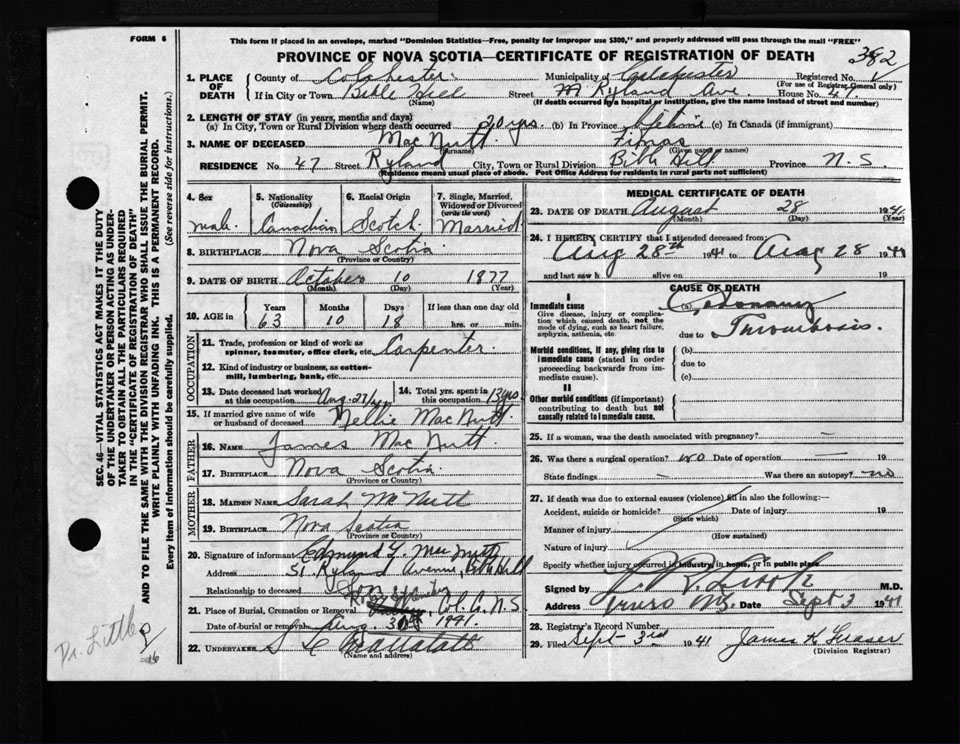 FORM 6
This form if placed in an envelope, marked "Dominion Statistics—Free, penalty for improper use $300," and properly addressed will pass through the mail "FREE"
PROVINCE OF NOVA SCOTIA—CERTIFICATE OF REGISTRATION OF DEATH 382
1. PLACE OF DEATH County of Colchester Municipality of Colchester Registered No.
(For use of Registrar General only)
If in City or Town Bible Hill Street Ryland Ave. House No. 47.
(Name) (If death occurred in a hospital or institution, give the name instead of street and number)
2. LENGTH OF STAY (in years, months and days)
(a) In City, Town or Rural Division where death occurred 20 yrs. (b) In Province Lifetime (c) In Canada (if immigrant)
3. NAME OF DECEASED Mac Nutt.
(Surname) (Given name or names)
RESIDENCE No. 47 Street Ryland City, Town or Rural Division Bible Hill Province N.S.
(Residence means usual place of abode. Post Office Address for residents in rural parts not sufficient)
4. Sex male
5. Nationality (Citizenship) Canadian
6. Racial Origin Scotch.
7. Single, Married, Widowed or Divorced (write the word) Married.
8. BIRTHPLACE Nova Scotia
(Province or Country)
9. DATE OF BIRTH October 10 1877
(Month) (Day) (Year)
10. AGE in Years 63 Months 10 Days 18 If less than one day old hrs. or min.
OCCUPATION
11. Trade, profession or kind of work as spinner, teamster, office clerk, etc. Carpenter.
12. Kind of industry or business, as cotton-mill, lumbering, bank, etc.
13. Date deceased last worked at this occupation Aug. 27/41
14. Total yrs. spent in this occupation 13 yrs.
15. If married give name of wife or husband of deceased Nellie MacNutt.
FATHER
16. NAME James Mac Nutt.
17. BIRTHPLACE Nova Scotia
(Province or Country)
MOTHER
18. MAIDEN NAME Sarah McNutt
19. BIRTHPLACE Nova Scotia
(Province or Country)
20. Signature of informant Edmund Y. MacNutt
Address 51 Ryland Avenue, Bible Hill
Relationship to deceased
21. Place of Burial, Cremation or Removal Col. Co. N.S.
Date of burial or removal Aug. 30 1941.
22. UNDERTAKER
(Name and address)
MEDICAL CERTIFICATE OF DEATH
23. DATE OF DEATH August 28 1941
(Month) (Day) (Year)
24. I HEREBY CERTIFY that I attended deceased from:
Aug 28th 1941 to Aug 28 1941
and last saw h alive on 19
CAUSE OF DEATH
I
Immediate cause (a) Coronary
Give disease, injury or complication which caused death, not the mode of dying, such as heart failure, asphyxia, asthenia, etc
due to Thrombosis.
Morbid conditions, if any, giving rise to immediate cause (stated in order proceeding backwards from immediate cause).
(b)
due to
(c)
II
Other morbid conditions (if important) contributing to death but not causally related to immediate cause.
25. If a woman, was the death associated with pregnancy? —
26. Was there a surgical operation? no Date of operation —
State findings — Was there an autopsy? no
27. If death was due to external causes (violence) fill in also the following:—
Accident, suicide or homicide? Date of injury 19
(State which)
Manner of injury
(How sustained)
Nature of injury
Specify whether injury occurred in industry, in home, or in public place
Signed by M.D.
Address Truro N.S. Date Sept 3 1941
28. Registrar's Record Number
29. Filed Sept 3rd 1941 James K Fraser
(Division Registrar)
SEC. 46—VITAL STATISTICS ACT MAKES IT THE DUTY
OF THE UNDERTAKER OR PERSON ACTING AS UNDER-
TAKER TO OBTAIN ALL THE PARTICULARS REQUIRED
IN THE "CERTIFICATE OF REGISTRATION OF DEATH"
AND TO FILE THE SAME WITH THE DIVISION REGISTRAR WHO SHALL ISSUE THE BURIAL PERMIT.
WRITE PLAINLY WITH UNFADING INK. THIS IS A PERMANENT RECORD.
Every item of information should be carefully supplied. (See reverse side for instructions.)
Dr. Little